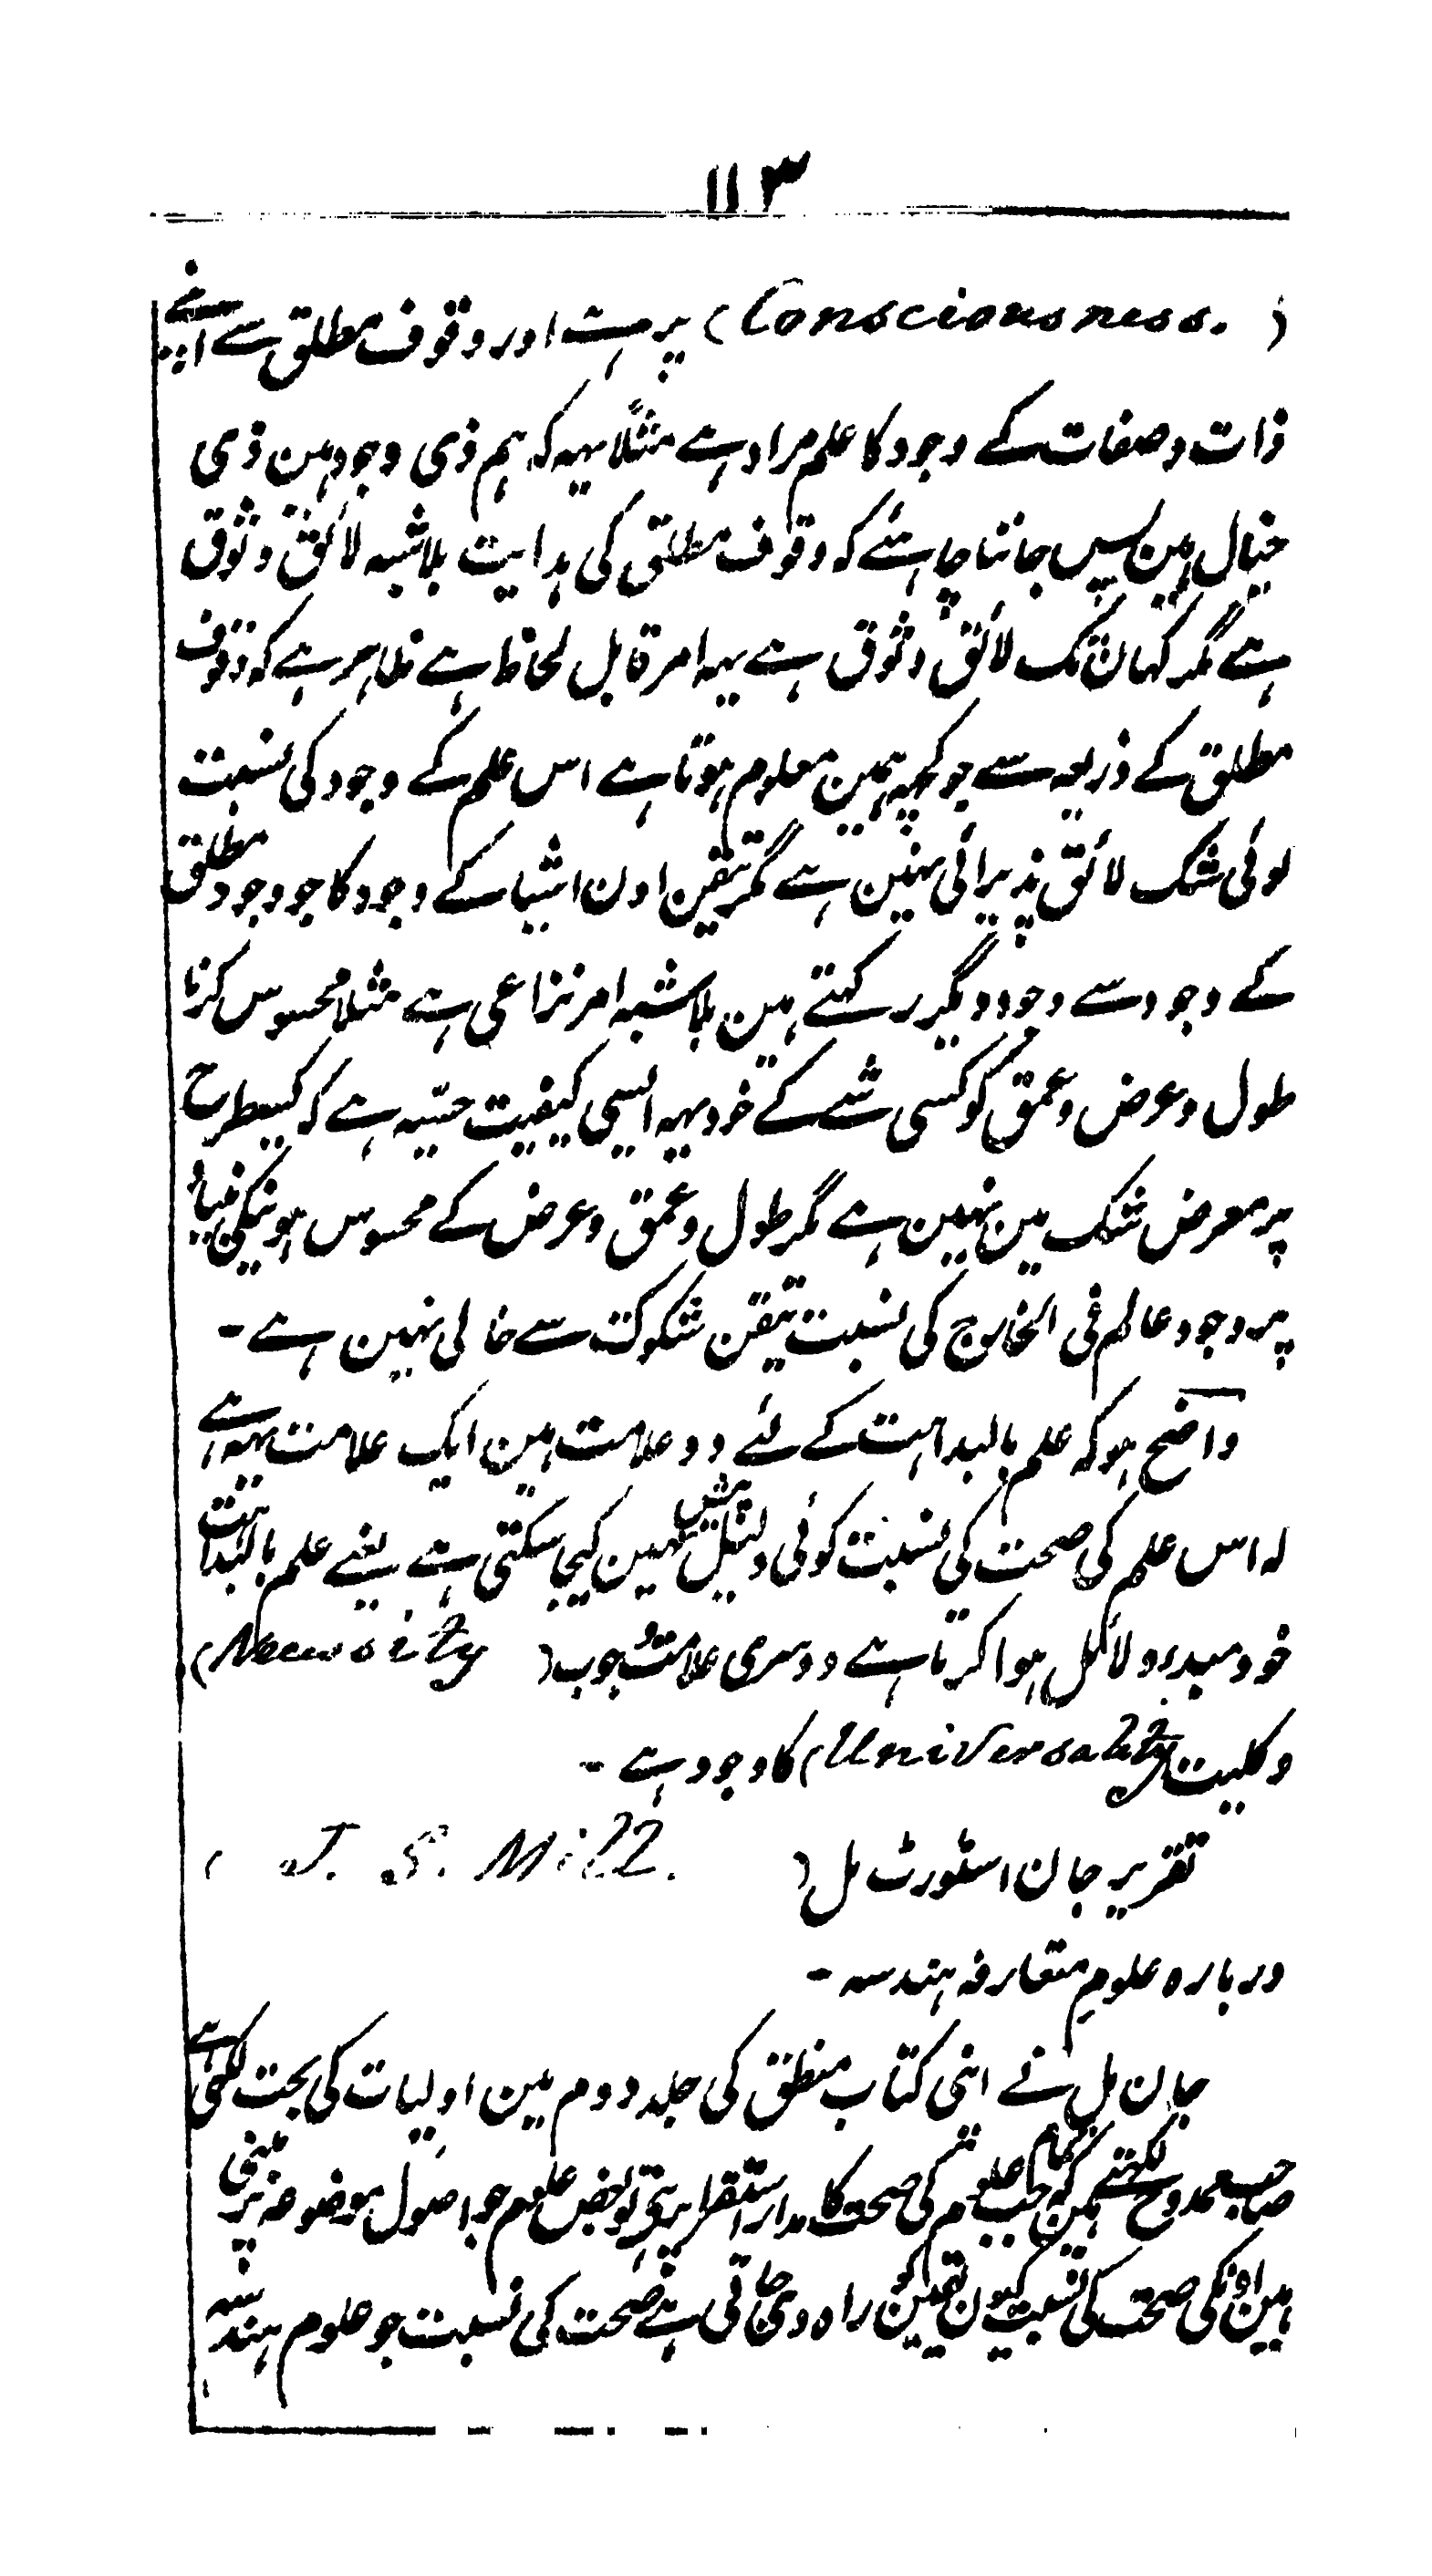 ۱۱۳
(Consciousness.) پر ہے اور وقوف مطلق سے اپنے
ذات و صفات کے وجود کا علم مراد ہے مثلاً یہہ کہ ہم ذی وجود ہین ذی
خیال ہین پس جاننا چاہئے کہ وقوف مطلق کی ہدایت بلاشبہ لائق وثوق
ہے مگر کہان تک لائق وثوق ہے یہہ امر قابل لحاظ ہے ظاہر ہے کہ وقوف
مطلق کے ذریعہ سے جو کچہہ ہمین معلوم ہوتا ہے اس علم کے وجود کی نسبت
کوئی شک لائق پذیرائی نہین ہے مگر تیقن اون اشیا کے وجود کا جو وجود مطلق
کے وجود سے وجود دیگر رکہتے ہین بلاشبہ امر نزاعی ہے مثلا محسوس کرنا
طول و عرض و عمق کو کسی شے کے خود یہہ ایسی کیفیت حسّیہ ہے کہ کسیطرح
پر معرض شک مین نہین ہے مگر طول و عمق و عرض کے محسوس ہونیکی بنیاد
پر وجود عالم فی الخارج کی نسبت تیقن شکوک سے خالی نہین ہے ۔
واضح ہو کہ علم بالبداہت کے لئے دو علامت ہین ایک علامت یہہ ہے
کہ اس علم کی صحت کی نسبت کوئی دلیل پیش نہین کیجا سکتی ہے یعنے علم بالبداہت
خود مبدءِ دلائل ہوا کرتا ہے دوسری علامت وجوب (Necessity)
و کلیت (Universality) کا وجود ہے ۔
تقریر جان اسٹورٹ مل (J. S. Mill.)
دربارہ علوم متعارفہ ہندسہ ۔
جان مل نے اپنی کتاب منطق کی جلد دوم مین اولیات کی بحث لکھی ہے
صاحب ممدوح لکھتے ہین کہ جب تمام علوم کی صحت کا مدار استقرا پر ہے تو بعض علوم جو اصول موضوعہ پر مبنی
ہین اونکی صحت کی نسبت کیون تیقن کو راہ دی جاتی ہے صحت کی نسبت جو علوم ہندسہ